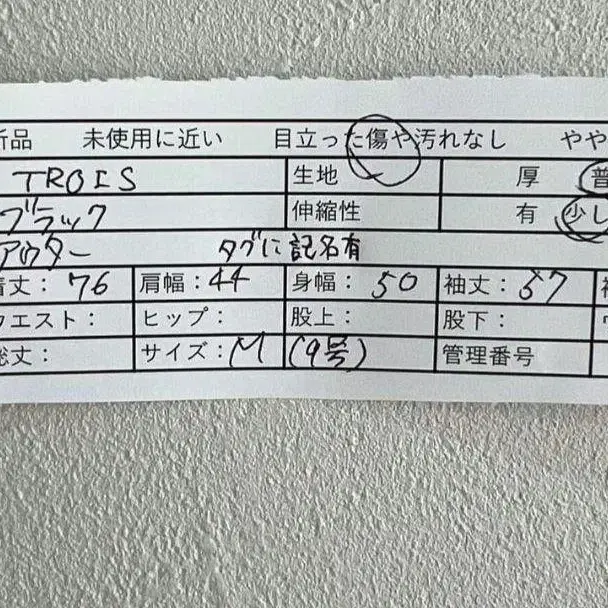 新品 未使用に近い 目立った傷や汚れなし やや
TROIS 生地 厚 普
ブラック 伸縮性 有 少し
アウター タグに記名有
着丈：76 肩幅：44 身幅：50 袖丈：57
ウエスト： ヒップ： 股上： 股下：
総丈： サイズ：M (9号) 管理番号